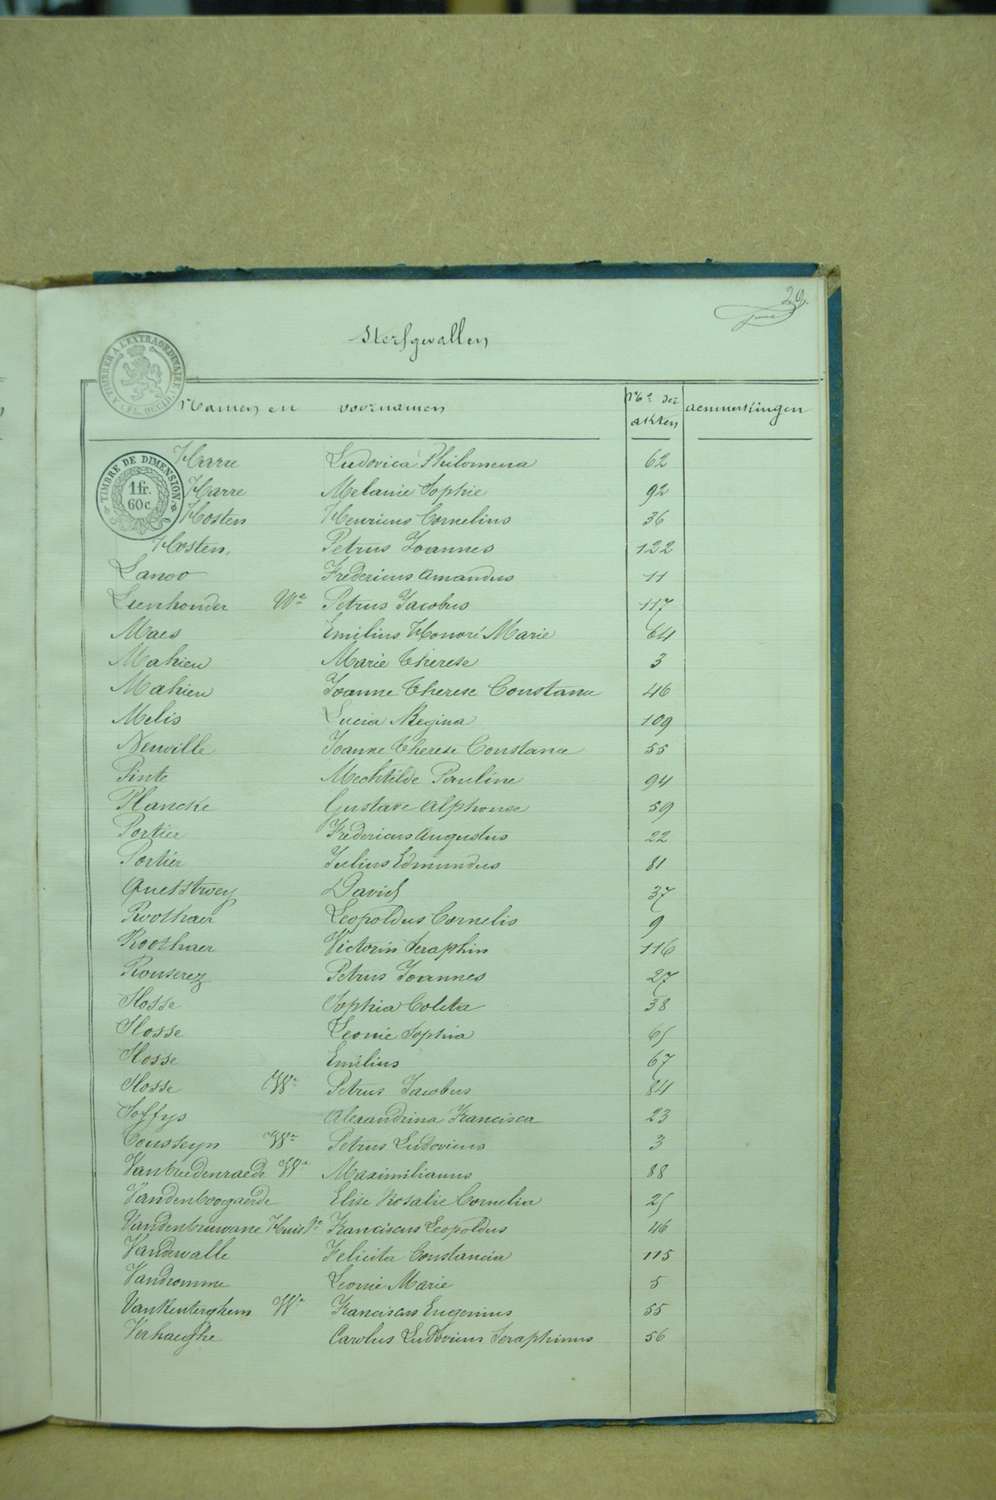 29.
Sterfgevallen
A TIMBRER A L'EXTRAORDINAIRE
Namen en voornamen Nos der akten aenmerkingen
TIMBRE DE DIMENSION 1 fr. 60 c.
Harre Ludovica Philomena 62
Harre Melanie Sophie 92
Hosten Henricus Cornelius 36
Hosten Petrus Joannes 122
Lanoo Fredericus Amandus 11
Leenhouder We Petrus Jacobus 117
Maes Emilius Honoré Marie 64
Mahieu Marie Therese 3
Mahieu Joanne Therese Constance 46
Melis Lucia Regina 109
Neuville Joanne Therese Constance 55
Pinte Mechtilde Pauline 94
Plancke Gustave Alphonse 59
Portier Fredericus Augustus 22
Portier Julius Edmundus 81
Quetstroey David 37
Roothaer Leopoldus Cornelis 9
Roothaer Victorin Seraphin 116
Rouserez Petrus Joannes 27
Slosse Sophia Coleta 38
Slosse Leonie Sophia 65
Slosse Emilius 67
Slosse We Petrus Jacobus 84
Soffys Alexandrina Francisca 23
Teusseyn We Petrus Ludovicus 3
We Maximilianus 88
Vandenboogaerde Elise Rosalie Cornelia 25
Franciscus Leopoldus 46
Vandewalle Felicita Constancia 115
Vandromme Leonie Marie 5
Vankenterghem We Franciscus Eugenius 55
Verhaeghe Carolus Ludovicus Seraphinus 56